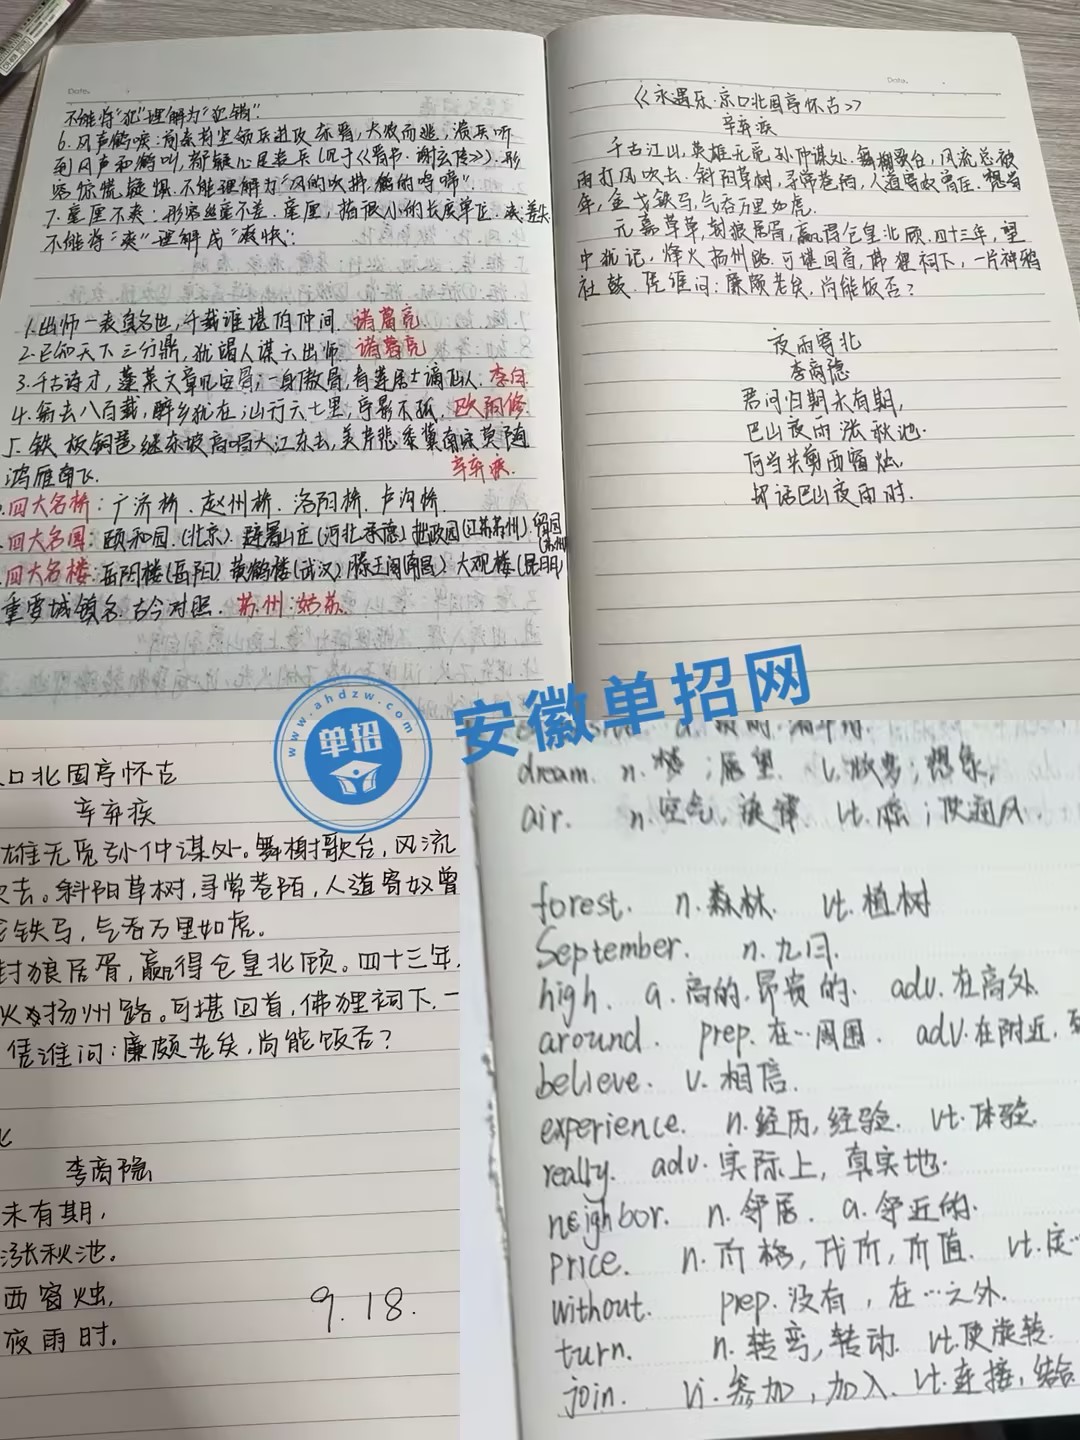 Date.
不能将“犯”理解为“犯错”.
6.风声鹤唳:前秦苻坚领兵进攻东晋,大败而逃,溃兵听
到风声和鹤叫,都疑心是追兵(见于《晋书·谢玄传》).形
容惊慌疑惧.不能理解为“风的吹拂,鹤的鸣啼”.
7.毫厘不爽:形容丝毫不差.毫厘,指很小的长度单位.爽:差失
不能将“爽”理解成“爽快”.
1.出师一表真名世,千载谁堪伯仲间.诸葛亮
2.已知天下三分鼎,犹竭人谋六出师.诸葛亮
3.千古诗才,蓬莱文章建安骨;一身傲骨,青莲居士谪仙人.李白
4.翁去八百载,醉乡犹在;山行六七里,亭影不孤.欧阳修
5.铁板铜琶继东坡高唱大江东去,美芹悲黍冀南宋莫随
鸿雁南飞.
辛弃疾.
四大名桥:广济桥.赵州桥.洛阳桥.卢沟桥.
四大名园:颐和园.(北京).避暑山庄(河北承德)拙政园(江苏苏州).留园
(苏州)
四大名楼:岳阳楼(岳阳).黄鹤楼(武汉).滕王阁(南昌).大观楼(昆明)
重要城镇名.古今对照.苏州:姑苏.
Date.
《永遇乐·京口北固亭怀古》
辛弃疾
千古江山,英雄无觅孙仲谋处.舞榭歌台,风流总被
雨打风吹去.斜阳草树,寻常巷陌,人道寄奴曾住.想当
年,金戈铁马,气吞万里如虎.
元嘉草草,封狼居胥,赢得仓皇北顾.四十三年,望
中犹记,烽火扬州路.可堪回首,佛狸祠下,一片神鸦
社鼓.凭谁问:廉颇老矣,尚能饭否?
夜雨寄北
李商隐
君问归期未有期,
巴山夜雨涨秋池.
何当共剪西窗烛,
却话巴山夜雨时.
www.ahdzw.com
单招
安徽单招网
口北固亭怀古
辛弃疾
雄无觅孙仲谋处。舞榭歌台,风流
吹去。斜阳草树,寻常巷陌,人道寄奴曾
铁马,气吞万里如虎。
封狼居胥,赢得仓皇北顾。四十三年,
火扬州路。可堪回首,佛狸祠下.一
凭谁问:廉颇老矣,尚能饭否?
北
李商隐
未有期,
涨秋池。
西窗烛,
夜雨时.
9.18.
dream. n.梦;愿望. v.做梦;想象,
air. n.空气,旋律. vt.晾;使通风.
forest. n.森林. vt.植树
September. n.九月.
high. a.高的.昂贵的. adv.在高处.
around. prep.在…周围. adv.在附近,
believe. v.相信.
experience. n.经历,经验. vt.体验.
really. adv.实际上,真实地.
neighbor. n.邻居. a.邻近的.
price. n.价格,代价,价值. vt.定…
without. prep.没有,在…之外.
turn. n.转弯,转动. vt.使旋转.
join. vi.参加,加入. vt.连接,结合